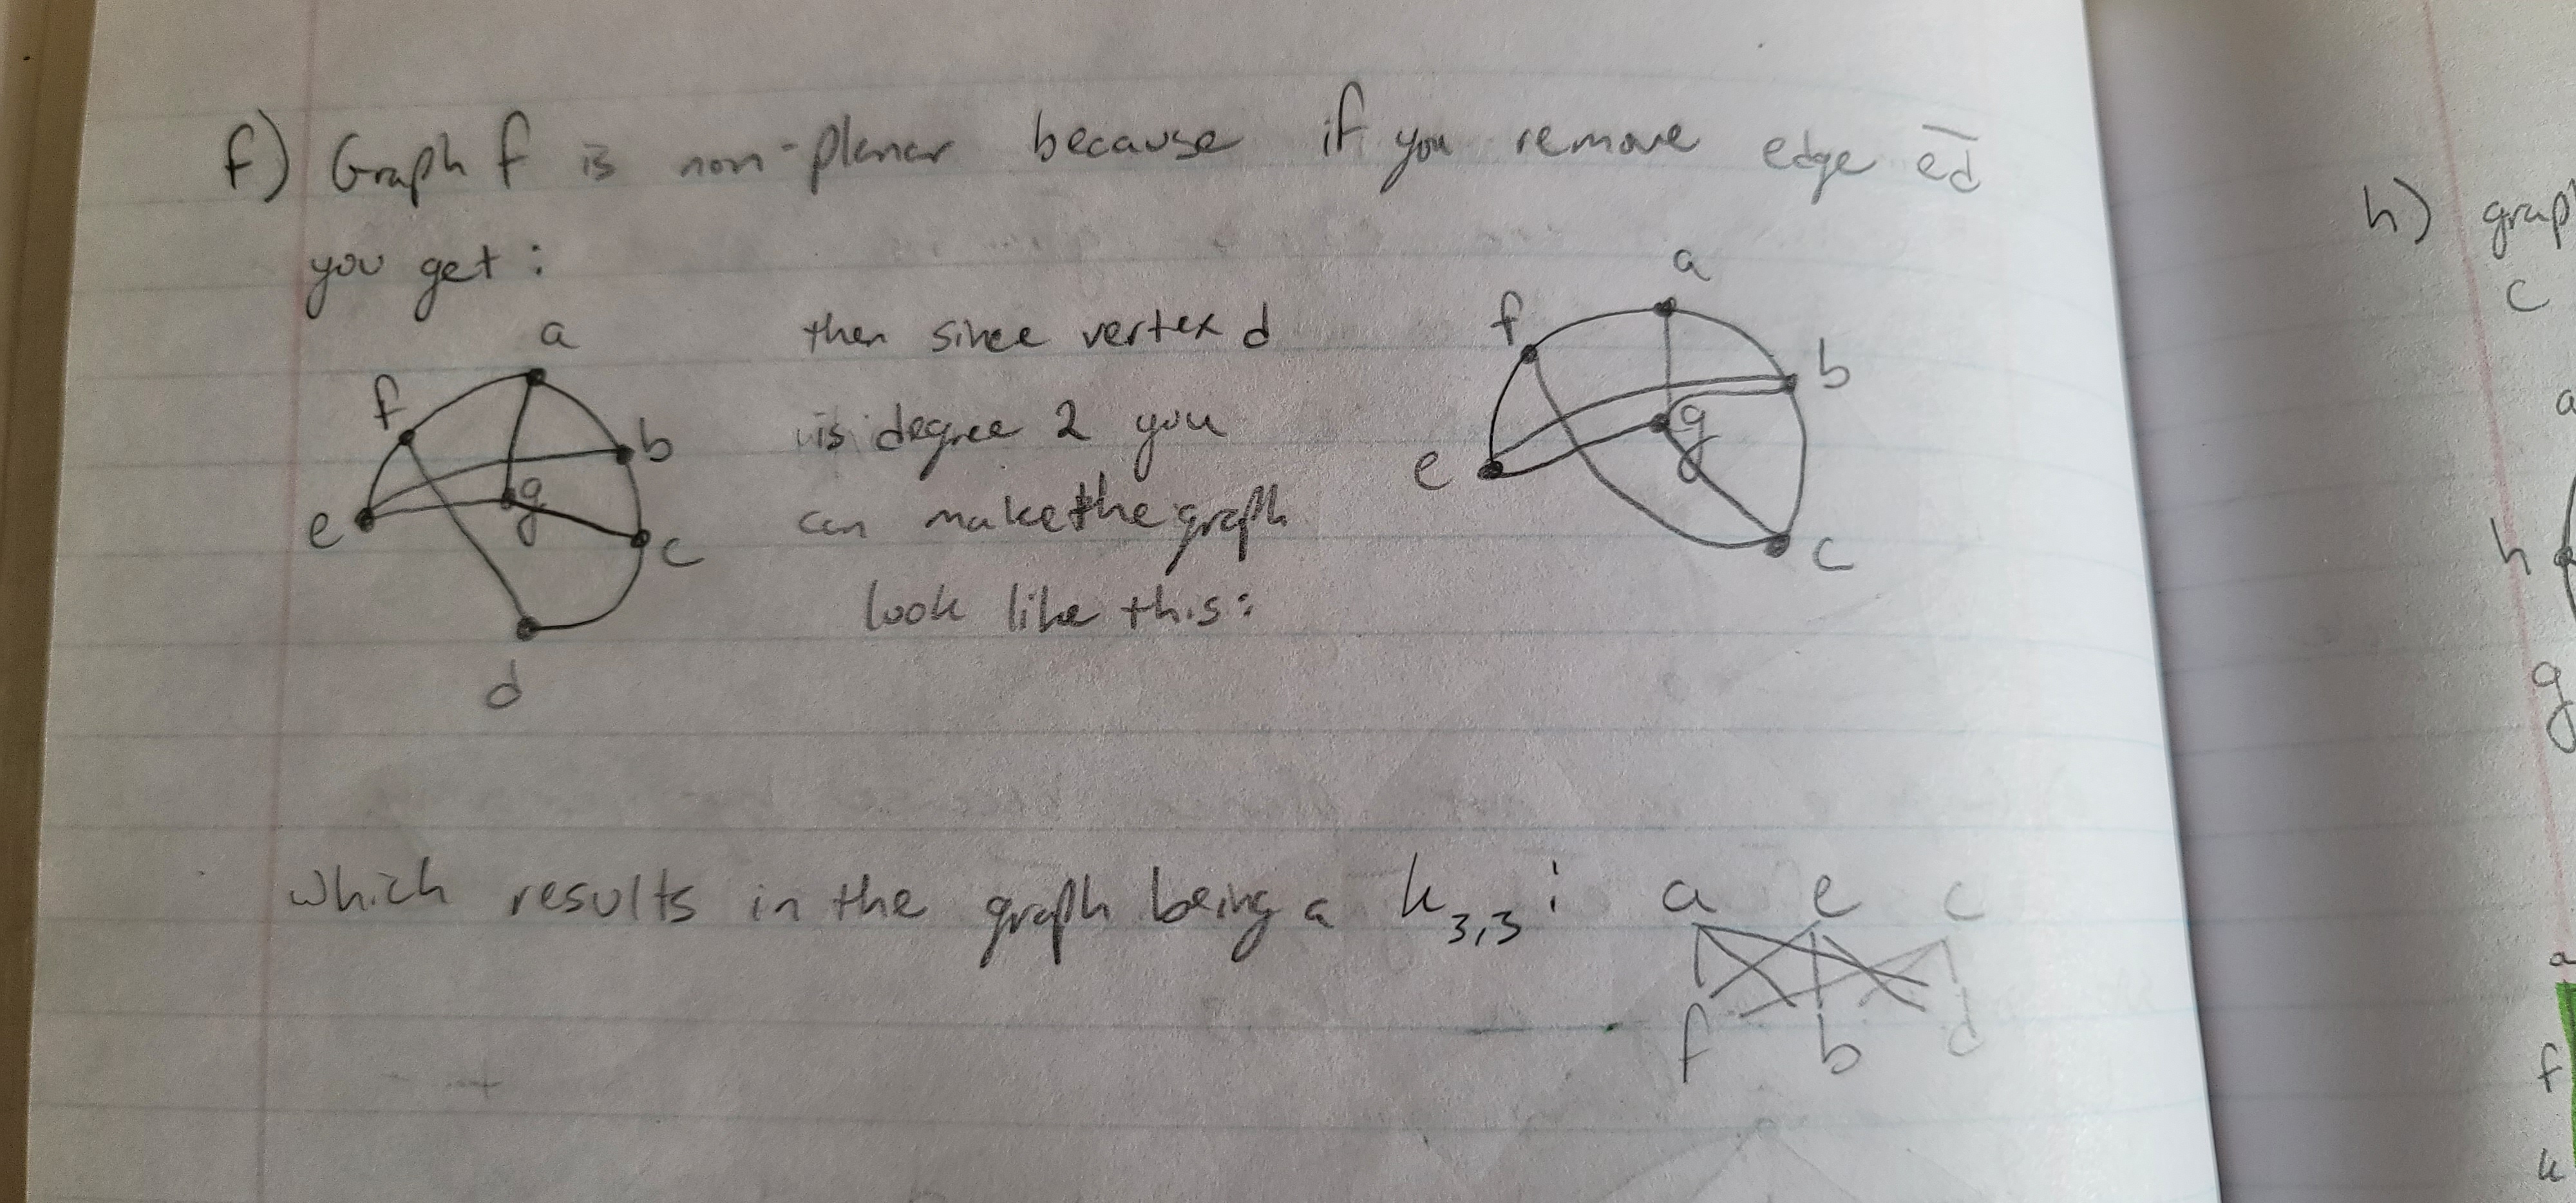 f) Graph f is non-planar because if you remove edge ed
you get:
a
f
e
g
b
c
d
then since vertex d
is degree 2 you
can make the graph
look like this:
a
f
e
g
b
c
which results in the graph being a k3,3: a e c
f b
h) grap
c
a
h
g
a
f